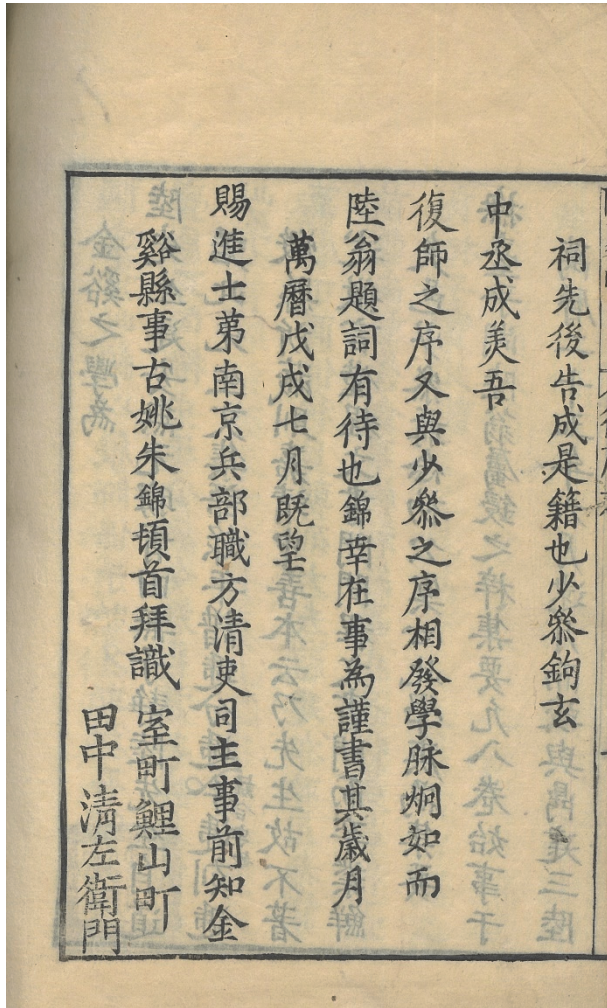 祠先後告成是籍也少叅鉤玄
中丞成羙吾
復師之序又與少叅之序相發學脉炯如而
陸翁題詞有待也錦幸在事為謹書其歲月
萬曆戊戌七月既望
賜進士苐南京兵部職方清吏司主事前知金
谿縣事古姚朱錦頓首拜識 室町鯉山町
田中清左衛門